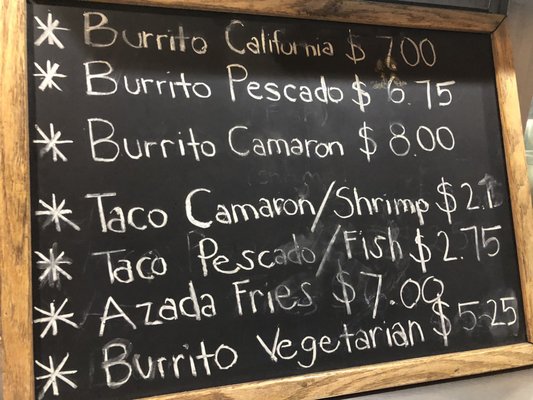 * Burrito California $ 7.00
* Burrito Pescado $ 6.75
* Burrito Camaron $8.00
* Taco Camaron/Shrimp
* Taco Pescado/Fish $2.75
* Azada Fries $7.00
* Burrito Vegetarian $5.25